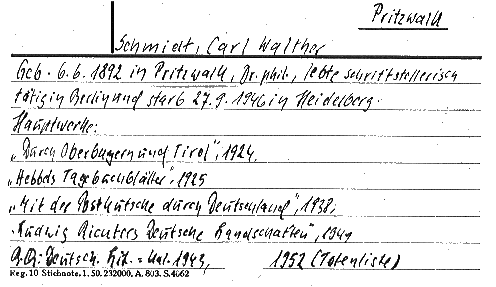 Pritzwalk
Schmidt, Carl Walther
Geb. 6.6.1892 in Pritzwalk, Dr. phil., lebte schriftstellerisch
tätig in Berlin und starb 27.9.1946 in Heidelberg.
Hauptwerke:
„Durch Oberbayern und Tirol", 1924,
„Hebbels Tagebuchblätter", 1925
„Mit der Postkutsche durch Deutschland", 1938,
Ludwig Richters Deutsche Landschaften", 1941
Deutsch. Lit. = Kal. 1943, 1952 (Totenliste)
Reg. 10 Stichnote. 1. 50. 232000. A. 803. S. 4662